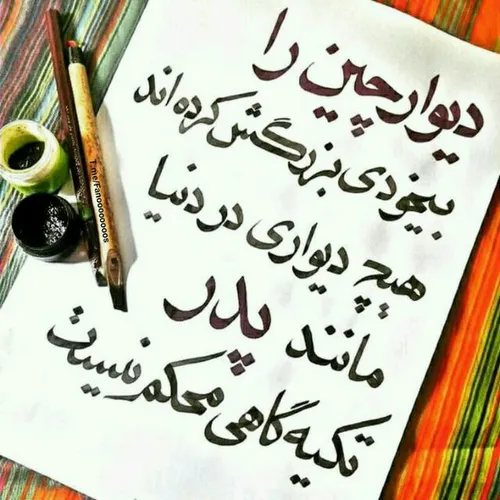 دیوار چین را
بیخودی بزرگش کرده اند
هیچ دیواری در دنیا
مانند پدر
تکیه گاهی محکم نیست
T.me/Fanoooooooos